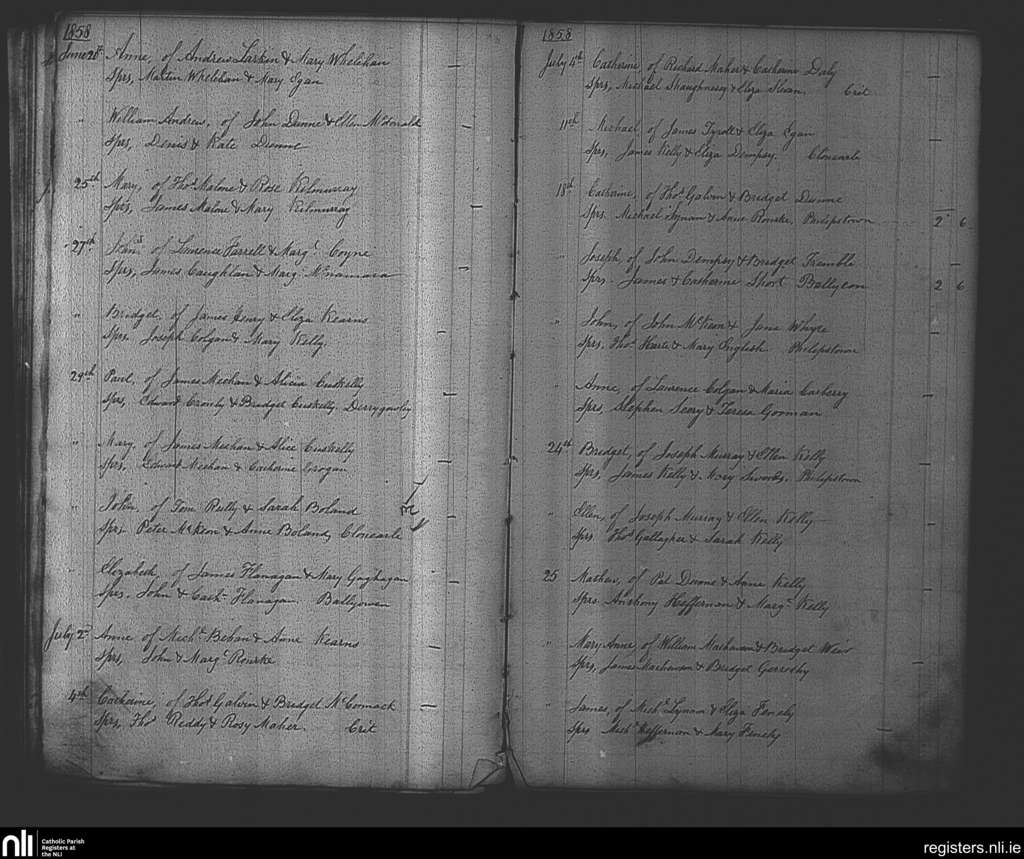 1858
June 20th Anne, of Andrew Larkin & Mary Whelehan
Sprs, Martin Whelehan & Mary Egan
" William Andrew, of John Dunne & Ellen McDonald
Sprs, Denis & Kate Dunne
25th Mary, of Thos Malone & Rose Kilmurray
Sprs, James Malone & Mary Kilmurray
27th of Laurence Farrell & Margt Coyne
Sprs, James Caughlan & Marg. McNamara
" Bridget, of James Henry & Eliza Kearns
Sprs. Joseph Colgan & Mary Kelly
29th Paul, of James Meehan & Alicia Cuskelly
Sprs, Edward & Bridget Cuskelly
" Mary, of James Meehan & Alice Cuskelly
Sprs, Edward Meehan & Catherine Grogan
" John, of Tom Reilly & Sarah Boland
Sprs. Peter McKeon & Anne Boland, Clonearle
" Elizabeth, of James Flanagan & Mary Gaghagan
Sprs. John & Cath. Flanagan. Ballyowen
July 2nd Anne of Michl Behan & Anne Kearns
Sprs, John & Margt Rourke
4th Catherine, of Thos Galvin & Bridget McCormack
Sprs, Thos Reddy & Rosy Maher. Crit
1858
July 4th Catherine of Richard Maher & Catherine Daly
Sprs, Michael Shaughnessy & Eliza Slevan. Crit
11th Michael of James Tyrell & Eliza Egan
Sprs, James Kelly & Eliza Dempsy. Clonearle
18th Catherine, of Thos Galvin & Bridget Dunne
Sprs. Michael Lynam & Anne Rourke, Philipstown 2 6
" Joseph, of John Dempsy & Bridget Tremble
Sprs. James & Catherine Short Ballycon 2 6
" John, of John McKeon & Jane Whyte
Sprs, Thos Harte & Mary English Philipstown
" Anne, of Laurence Colgan & Maria Carberry
Sprs, Stephen Seery & Teresa Gorman
24th Bridget, of Joseph Murray & Ellen Kelly
Sprs, James Kelly & Mary Swords, Philipstown
" Ellen, of Joseph Murray & Ellen Kelly
Sprs. Thos Gallagher & Sarah Kelly
25 Mathew, of Pat Dunne & Anne Kelly
Sprs. Anthony Heffernan & Margt Kelly
" Mary Anne, of William & Bridget Weir
Sprs, James & Bridget
" James, of Michl Lynam & Eliza Feneley
Sprs Michl Heffernan & Mary Feneley
nli
Catholic Parish
Registers at
the NLI
registers.nli.ie